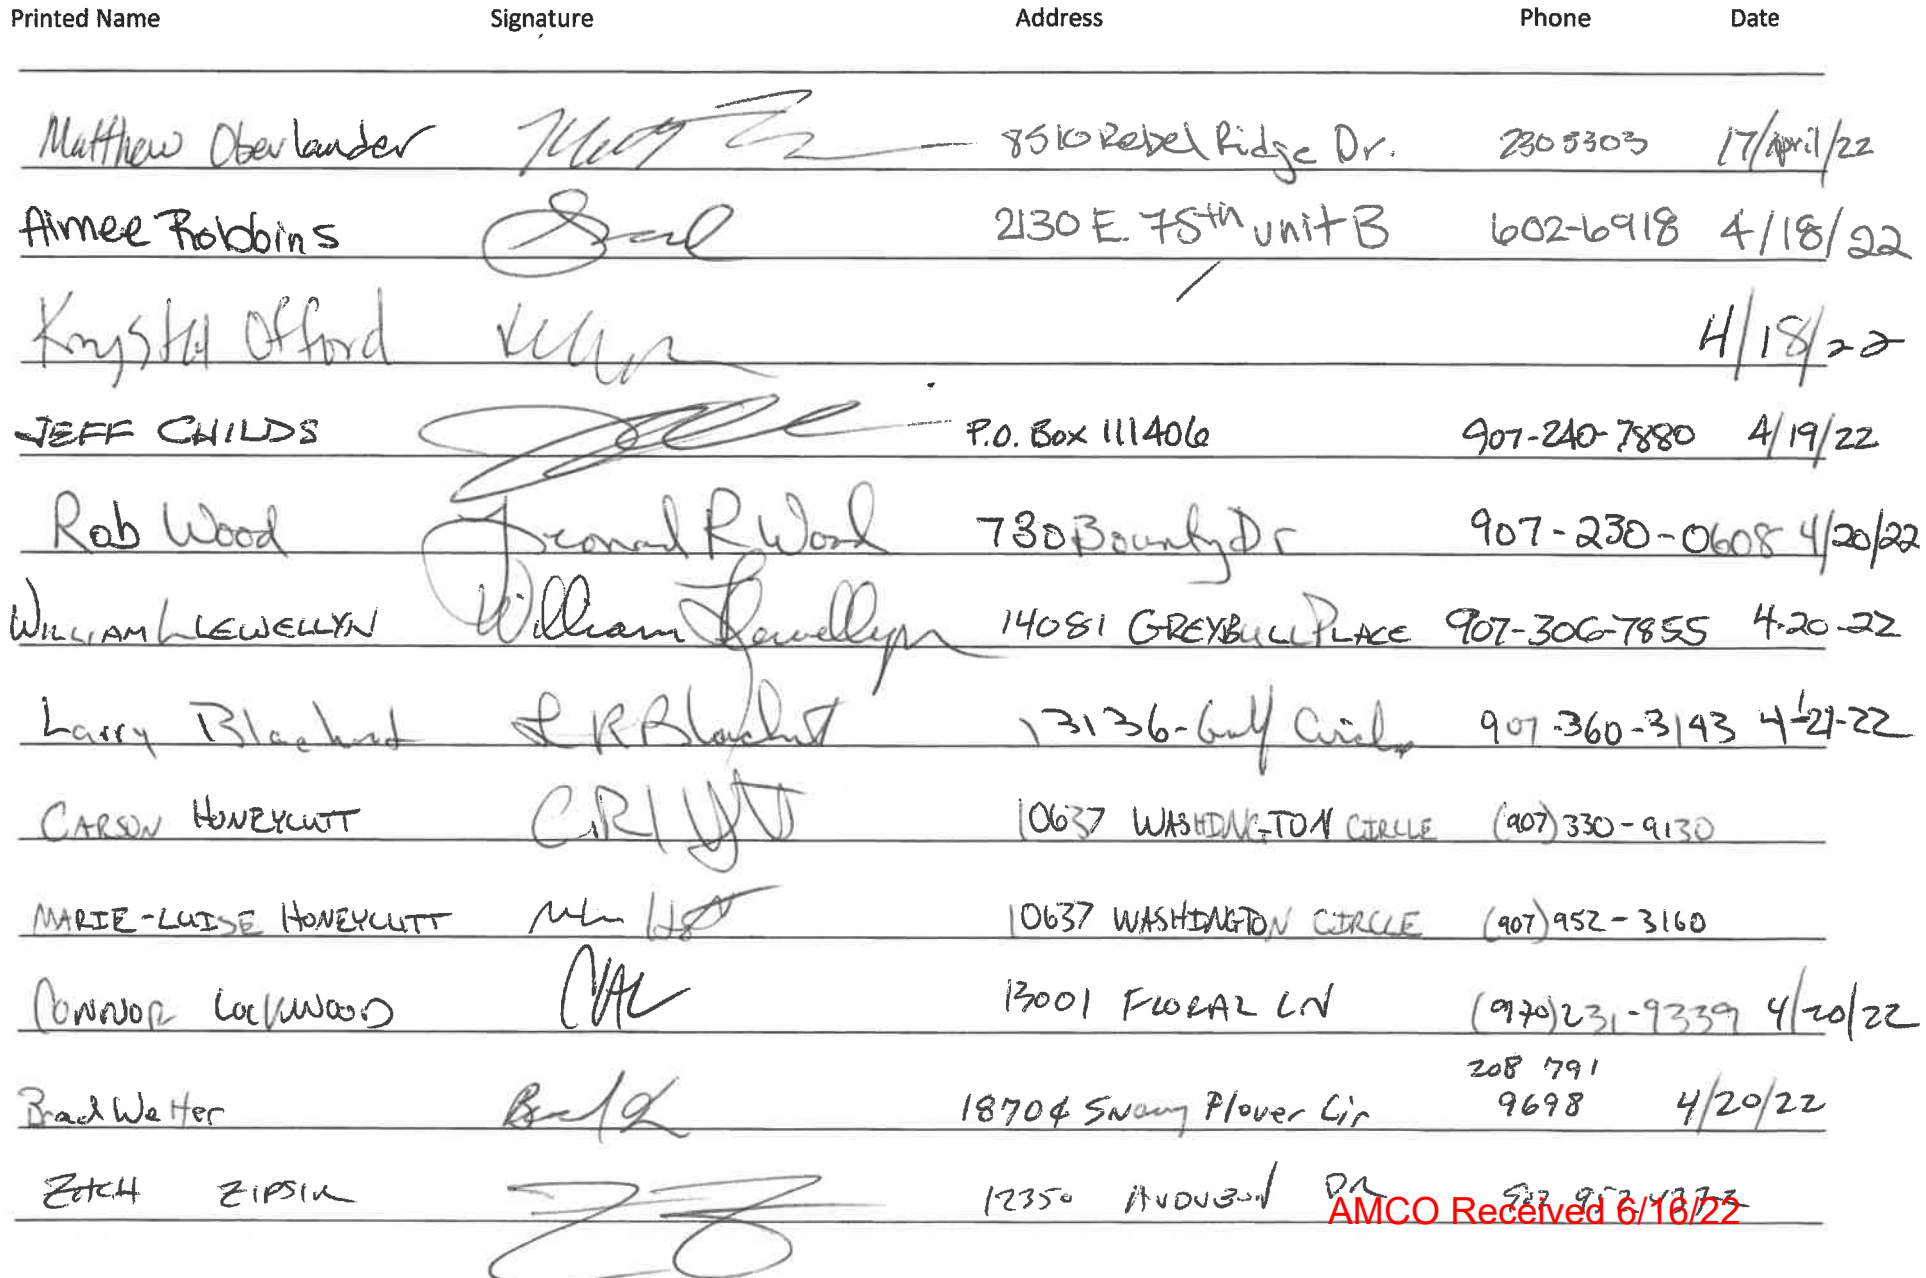 Printed Name Signature Address Phone Date
Matthew Oberlander 8510 Rebel Ridge Dr. 2305303 17/April/22
Aimee Robbins 2130 E. 75th unit B 602-6918 4/18/22
Krystal Offord 4/18/22
JEFF CHILDS P.O. Box 111406 907-240-7880 4/19/22
Rob Wood R Wood 730 Bounty Dr 907-230-0608 4/20/22
WILLIAM LLEWELLYN William Llewellyn 14081 GREYBULL PLACE 907-306-7855 4-20-22
Larry Blachut L R Blachut 13136 - Gulf Circle 907-360-3143 4-21-22
CARSON HONEYCUTT 10637 WASHINGTON CIRCLE (907) 330-9130
MARIE-LUISE HONEYCUTT 10637 WASHINGTON CIRCLE (907) 952-3160
CONNOR LOCKWOOD 13001 FLORAL LN (970) 231-9339 4/20/22
208 791
Brad Welter 18704 Snowy Plover Cir 9698 4/20/22
ZACH ZIPSIR 12350 AUDUBON DR
AMCO Received 6/16/22